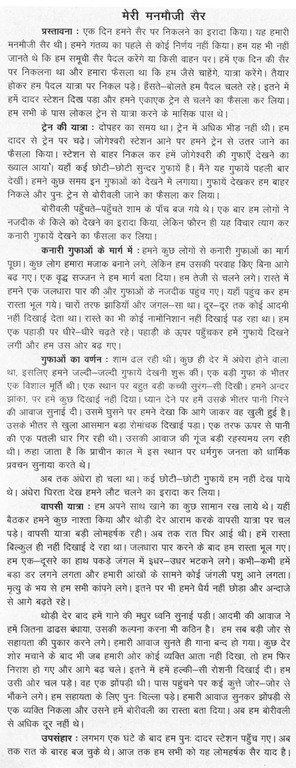 मेरी मनमौजी सैर
प्रस्तावना : एक दिन हमने सैर पर निकलने का इरादा किया। यह हमारी
मनमौजी सैर थी। हमने गंतव्य का पहले से कोई निर्णय नहीं किया। हम यह भी नहीं
जानते थे कि हम समूची सैर पैदल करेंगे या किसी वाहन पर। हमें एक दिन की सैर
पर निकलना था और हमारा फैसला था कि हम जैसे चाहेंगे, यात्रा करेंगे। तैयार
होकर हम पैदल यात्रा पर निकल पड़े। हँसते-बोलते हम पैदल चलते रहे। इतने में
हमें दादर स्टेशन दिख पडा और हमने एकाएक ट्रेन से चलने का फैसला कर लिया।
हम सभी के पास लोकल ट्रेन से यात्रा करने के मासिक पास थे।
ट्रेन की यात्रा : दोपहर का समय था। ट्रेन में अधिक भीड़ नहीं थी। हम
दादर से ट्रेन पर चढ़े। जोगेश्वरी स्टेशन आने पर हमने ट्रेन से उतर जाने का
फैसला किया। स्टेशन से बाहर निकल कर हमें जोगेश्वरी की गुफाएँ देखने का
ख्याल आया। यहाँ कई छोटी-छोटी सुन्दर गुफायें हैं। मैंने यह गुफायें पहली बार
देखीं। हमने कुछ समय इन गुफाओं को देखने में लगाया। गुफायें देखकर हम बाहर
निकले और पुनः ट्रेन से बोरीवली जाने का फैसला कर लिया।
बोरीवली पहुँचते-पहुँचते शाम के पाँच बज गये थे। एक बार हम लोगों ने
नजदीक के किले को देखने का इरादा किया, लेकिन फौरन ही यह विचार त्याग कर
कनारी गुफायें देखने का फैसला कर लिया।
कनारी गुफाओं के मार्ग में : हमने कुछ लोगों से कनारी गुफाओं का मार्ग
पूछा। कुछ लोग हमारा मजाक बनाने लगे, लेकिन हम उसकी परवाह किए बिना आगे
बढ़ गए। एक वृद्ध सज्जन ने हम मार्ग बता दिया। हम तेजी से चलने लगे। रास्ते में
हमने एक जलधारा पार की और गुफाओं के नजदीक पहुंच गए। यहाँ पहुंच कर हम
रास्ता भूल गये। चारों तरफ झाड़ियों और जंगल-सा था। दूर-दूर तक कोई आदमी
नहीं दिखाई देता था। रास्ते का भी कोई नामोनिशान नहीं दिखाई पड़ रहा था। हम
एक पहाड़ी पर धीरे-धीरे चढ़ते रहे। पहाड़ी के ऊपर पहुँचकर हमें गुफायें दिखने
लगी और हम उस ओर बढ़ गए।
गुफाओं का वर्णन : शाम ढल रही थी। कुछ ही देर में अंधेरा होने वाला
था, इसलिए हमने जल्दी-जल्दी गुफायें देखनी शुरू की। एक बड़ी गुफा के भीतर
एक विशाल मूर्ति थी। एक स्थान पर बहुत बड़ी कच्ची सुरंग-सी दिखी। हमने अन्दर
झांका, पर हमें कुछ दिखाई नहीं दिया। ध्यान देने पर हमें उसके भीतर पानी गिरने
की आवाज सुनाई दी। उसमें घुसने पर हमने देखा कि आगे जाकर वह खुली हुई है।
उसके भीतर से खुला आसमान बड़ा रोमांचक दिखाई पड़ा। एक तरफ ऊपर से पानी
की एक पतली धार गिर रही थी। उसकी आवाज की गूंज बड़ी रहस्यमय लग रही
थी। कहा जाता है कि प्राचीन काल में इस स्थान पर धर्मगुरु जनता को धार्मिक
प्रवचन सुनाया करते थे।
अब तक अंधेरा हो चला था। कई छोटी-छोटी गुफायें हम नहीं देख पाये
थे। अंधेरा घिरता देख हमने लौट चलने का इरादा कर लिया।
वापसी यात्रा : हम अपने साथ खाने का कुछ सामान रख लाये थे। यहीं
बैठकर हमने कुछ नाश्ता किया और थोड़ी देर आराम करके वापसी यात्रा पर चल
पड़े। वापसी यात्रा बड़ी लोमहर्षक रही। अब तक रात घिर आई थी। हमें रास्ता
बिल्कुल ही नहीं दिखाई दे रहा था। जलधारा पार करने के बाद हम रास्ता भूल गए।
हम एक-दूसरे का हाथ पकड़े जंगल में इधर-उधर भटकने लगे। कभी-कभी हमें
बड़ा डर लगने लगता और हमारी आंखों के सामने कोई जंगली पशु आने लगता।
मृत्यु के भय से हम सभी कांपने लगे। इतने पर भी हमने धैर्य नहीं छोड़ा और अन्दाजे
से आगे बढ़ते रहे।
थोड़ी देर बाद हमें गाने की मधुर ध्वनि सुनाई पड़ी। आदमी की आवाज ने
हमें जितना ढाढस बंधाया, उसकी कल्पना करना भी कठिन है। हम सब बड़ी जोर से
सहायता की पुकार करने लगे। हमारी आवाज सुनते ही गाना बन्द हो गया। कुछ देर
शोर मचाने के बाद भी जब हमारी ओर कोई व्यक्ति आता नहीं दिखा, तो हम फिर
निराश हो गए और आगे बढ़ चले। इतने में हमें हल्की-सी रोशनी दिखाई दी। हम
उसी ओर चल पड़े। वह एक झोंपड़ी थी। पास पहुंचने पर कई कुत्ते जोर-जोर से
भौंकने लगे। हम सहायता के लिए पुनः चिल्ला पड़े। हमारी आवाज सुनकर झोंपड़ी से
एक व्यक्ति निकला और उसने हमें बोरीवली का रास्ता बता दिया। अब हम बोरीवली
से अधिक दूर नहीं थे।
उपसंहार : लगभग एक घंटे के बाद हम पुनः दादर स्टेशन पहुँच गए। अब
तक रात के बारह बज चुके थे। आज तक हम सभी को यह लोमहर्षक सैर याद है।